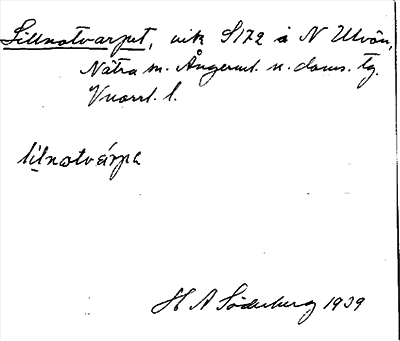 Lillnotvarpet, vik S172 å N Ulvön,
Nätra sn. Ångerml. n. doms. tg.
Vnorrl. l.
lilnotvárpa
H A Söderberg 1939